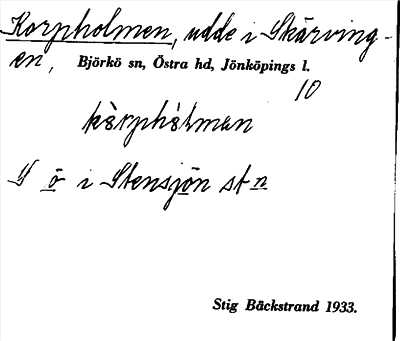 Korpholmen, udde i Skärving-
en, Björkö sn, Östra hd, Jönköpings l.
10
kòrphòlman
ö i Stensjön st n
Stig Bäckstrand 1933.